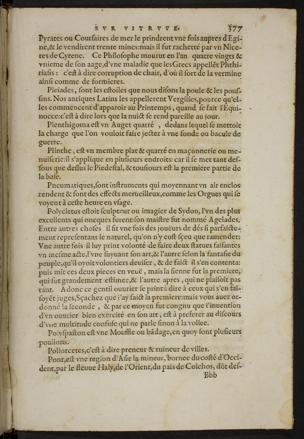 SVR VITRVVE. 377
Pyrates ou Coursaires de mer le prindrent vne fois aupres d'Egi-
ne,& le vendirent trente mines: mais il fut racheté par vn Nice-
tes de Cyrene. Ce Philosophe mourut en l'an quatre vingts &
vnieme de son aage, d'vne maladie que les Grecs appellēt Phthi-
riasis: c'est à dire corruption de chair, d'où il sort de la vermine
ainsi comme de formieres.
Pleiades, sont les estoiles que nous disons la poule & les pous-
sins. Noz antiques Latins les appellerent Vergilies, pource qu'el-
les commencent d'apparoir au Printemps, quand se fait l'Equi-
nocce: c'est à dire lors que la nuict se rend pareille au jour.
Plenthigoma est vn Auget quarré, dedans lequel se mettoit
la charge que l'on vouloit faire jecter à vne fonde ou bacule de
guerre.
Plinthe, est vn membre plat & quarré en maçonnerie ou me-
nuiserie: il s'applique en plusieurs endroits: car il se met tant des-
sous que dessus le Piedestal, & tousjours est la premiere partie de
la base.
Pneumatiques, sont instruments qui moyennant vn air enclos
rendent & font des effects merveilleux, comme les Orgues qui se
voyent à ceste heure en vsage.
Polycletus estoit sculpteur ou imagier de Sydon, l'vn des plus
excellents qui oncques furent: son maistre fut nommé Agelades.
Entre autres choses il fit vne fois des joüeurs de dés si parfaicte-
ment representants le naturel, qu'on n'y eust sçeu que amender.
Vne autre fois il luy print volonté de faire deux statues faisantes
vn mesme acte, l'vne suyvant son art, & l'autre selon la fantasie du
peuple, qu'il oyoit volontiers deviser, & de faict il s'en contenta:
puis mit ces deux pieces en veuë, mais la sienne fut la premiere,
qui fut grandement estimee, & l'autre apres, qui ne plaisoit pas
tant. Adonc ce gentil ouvrier se print à dire à ceux qui s'en fai-
soyēt juges, Sçachez que j'ay faict la premiere: mais vous avez or-
donné la seconde, & par ce moyen fut congnu que l'intention
d'vn ouvrier bien exercité en son art, est à preferer au discours
d'vne multitude confuse qui ne parle sinon à la vollee.
Polyspaston est vne Mouffle ou bādage, en quoy sont plusieurs
poulions.
Poliorcetes, c'est à dire preneur & ruineur de villes.
Pont, est vne region d'Asie la mineur, bornee du costé d'Occi-
dent, par le fleuve Haly, de l'Orient, du païs de Colchos, dōt des-
Bbb